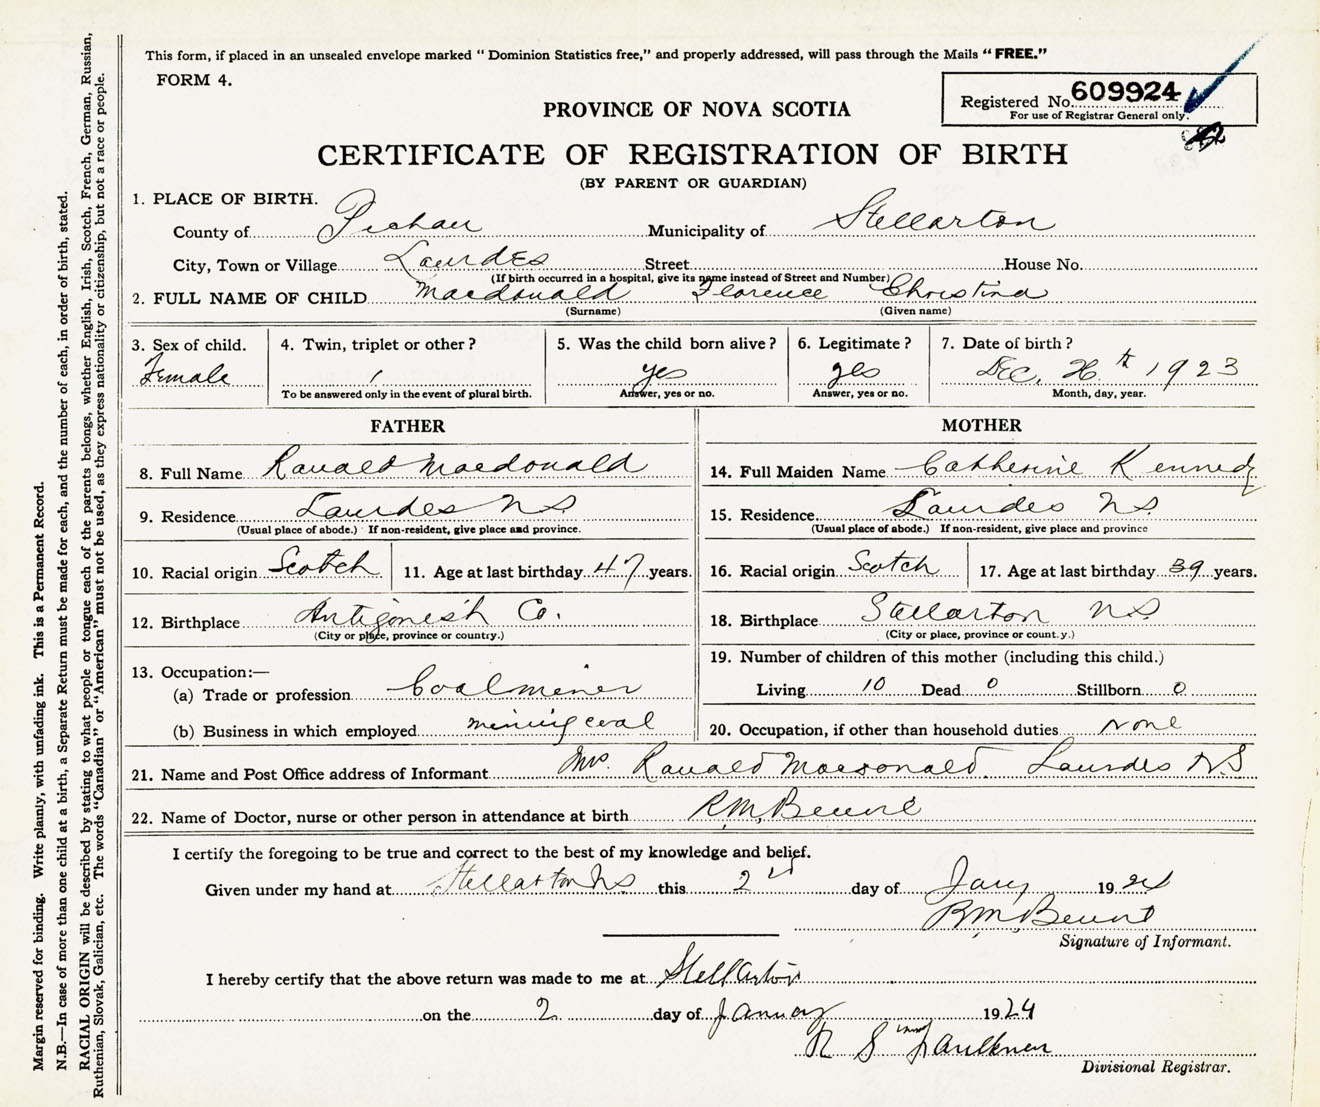 This form, if placed in an unsealed envelope marked “ Dominion Statistics free,” and properly addressed, will pass through the Mails “ FREE.”
FORM 4.
Registered No. 609924
For use of Registrar General only.
PROVINCE OF NOVA SCOTIA
CERTIFICATE OF REGISTRATION OF BIRTH
(BY PARENT OR GUARDIAN)
1. PLACE OF BIRTH.
County of Pictou Municipality of Stellarton
City, Town or Village Lourdes Street House No.
(If birth occurred in a hospital, give its name instead of Street and Number)
2. FULL NAME OF CHILD Macdonald Florence Christina
(Surname) (Given name)
3. Sex of child. 4. Twin, triplet or other ? 5. Was the child born alive ? 6. Legitimate ? 7. Date of birth ?
Female 1 yes yes Dec. 26th 1923
To be answered only in the event of plural birth. Answer, yes or no. Answer, yes or no. Month, day, year.
FATHER MOTHER
8. Full Name Ronald Macdonald 14. Full Maiden Name Catherine Kennedy
9. Residence Lourdes N.S. 15. Residence Lourdes N.S.
(Usual place of abode.) If non-resident, give place and province. (Usual place of abode.) If non-resident, give place and province
10. Racial origin Scotch 11. Age at last birthday 47 years. 16. Racial origin Scotch 17. Age at last birthday 39 years.
12. Birthplace Antigonish Co. 18. Birthplace Stellarton N.S.
(City or place, province or country.) (City or place, province or country.)
13. Occupation:— 19. Number of children of this mother (including this child.)
(a) Trade or profession Coalminer Living 10 Dead 0 Stillborn 0
(b) Business in which employed mining coal 20. Occupation, if other than household duties None
21. Name and Post Office address of Informant Mrs. Ronald Macdonald Lourdes N.S
22. Name of Doctor, nurse or other person in attendance at birth R.M.
I certify the foregoing to be true and correct to the best of my knowledge and belief.
Given under my hand at Stellarton N.S this 2nd day of Jany 1924
R.M.
Signature of Informant.
I hereby certify that the above return was made to me at Stellarton
on the 2 day of January 1924
Faulkner
Divisional Registrar.
Margin reserved for binding. Write plainly, with unfading ink. This is a Permanent Record.
N.B.—In case of more than one child at a birth, a Separate Return must be made for each, and the number of each, in order of birth, stated.
RACIAL ORIGIN will be described by stating to what people or tongue each of the parents belongs, whether English, Irish, Scotch, French, German, Russian,
Ruthenian, Slovak, Galician, etc. The words “Canadian” or “American” must not be used, as they express nationality or citizenship, but not a race or people.